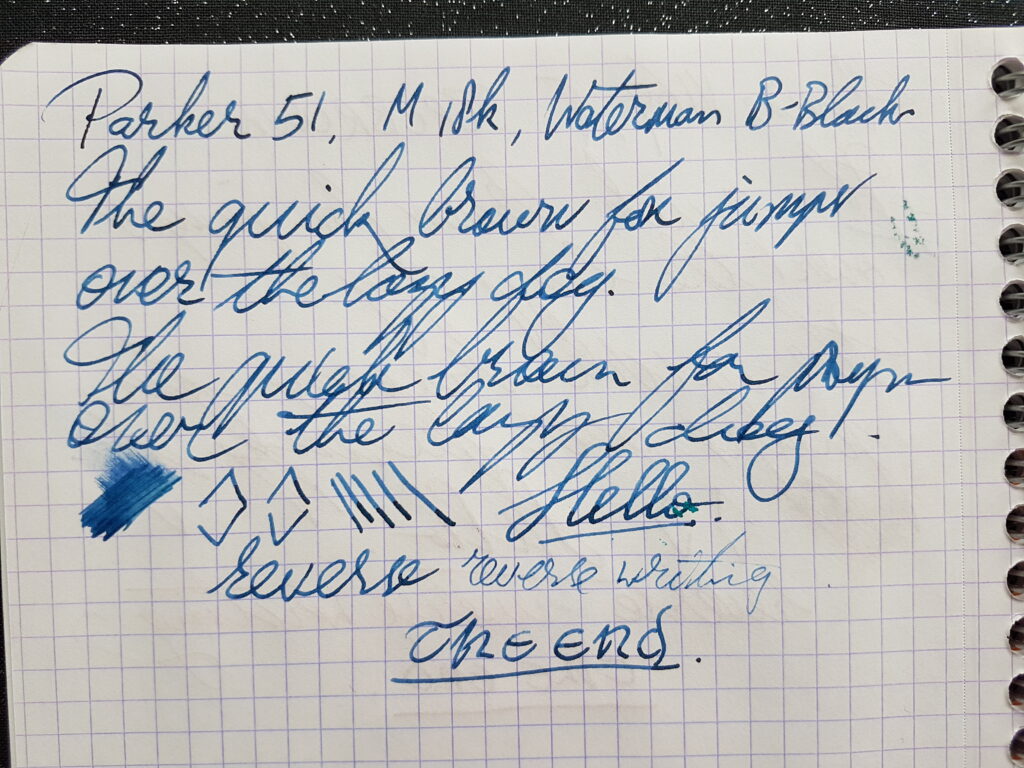 Parker 51, M 18k, Waterman B-Black
The quick brown fox jumps
over the lazy dog.
The quick brown fox
over the lazy
Hello.
reverse reverse writing
THE END.